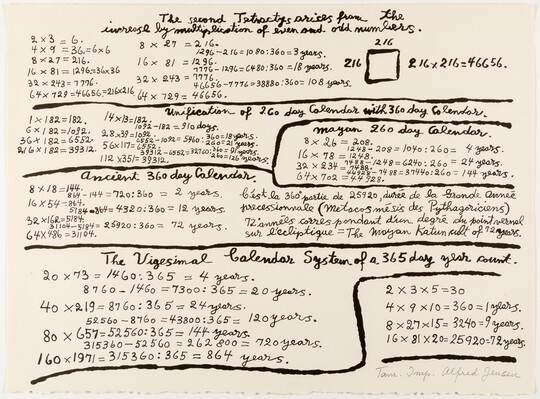 The second Tetractys arises from the
increase by multiplication of even and odd numbers.
2 × 3 = 6.
4 × 9 = 36 = 6×6
8 × 27 = 216.
16 × 81 = 1296 = 36×36
32 × 243 = 7776.
64 × 729 = 46656 = 216×216
8 × 27 = 216.
1296 - 216 = 1080:360 = 3 years.
16 × 81 = 1296.
7776 - 1296 = 6480:360 = 18 years.
32 × 243 = 7776.
46656 - 7776 = 38880:360 = 108 years.
64 × 729 = 46656.
216
216
216 × 216 = 46656.
Unification of 260 day Calendar with 360 day Calendar.
1 × 182 = 182.
6 × 182 = 1092.
36 × 182 = 6552.
216 × 182 = 39312.
14 × 13 = 182.
1092 - 182 = 910 days.
28 × 39 = 1092.
6552 - 1092 = 5460:
56 × 117 = 6552.
39312 - 6552 = 32760:
112 × 351 = 39312.
mayan 260 day Calendar.
8 × 26 = 208.
1248 - 208 = 1040:260 = 4 years.
16 × 78 = 1248.
7488 - 1248 = 6240:260 = 24 years.
32 × 234 = 7488.
44928 - 7488 = 37440:260 = 144 years.
64 × 702 = 44928.
Ancient 360 day Calendar.
8 × 18 = 144.
864 - 144 = 720:360 = 2 years.
16 × 54 = 864.
5184 - 864 = 4320:360 = 12 years.
32 × 162 = 5184.
31104 - 5184 = 25920:360 = 72 years.
64 × 486 = 31104.
C'est la 360e partie de 25920, durée de la Grande Année
précessionnelle (Metacosmésis des Pythagoriciens)
72 années correspondant d'un degré du point vernal
sur l'écliptique = The Mayan Katun cult of 72 years.
The Vigesimal Calendar System of a 365 day year count.
20 × 73 = 1460:365 = 4 years.
8760 - 1460 = 7300:365 = 20 years.
40 × 219 = 8760:365 = 24 years.
52560 - 8760 = 43800:365 = 120 years.
80 × 657 = 52560:365 = 144 years.
315360 - 52560 = 262800 = 720 years.
160 × 1971 = 315360:365 = 864 years.
2 × 3 × 5 = 30
4 × 9 × 10 = 360 = 1 years.
8 × 27 × 15 = 3240 = 9 years.
16 × 81 × 20 = 25920 = 72 years.
Tam. Imp. Alfred Jensen